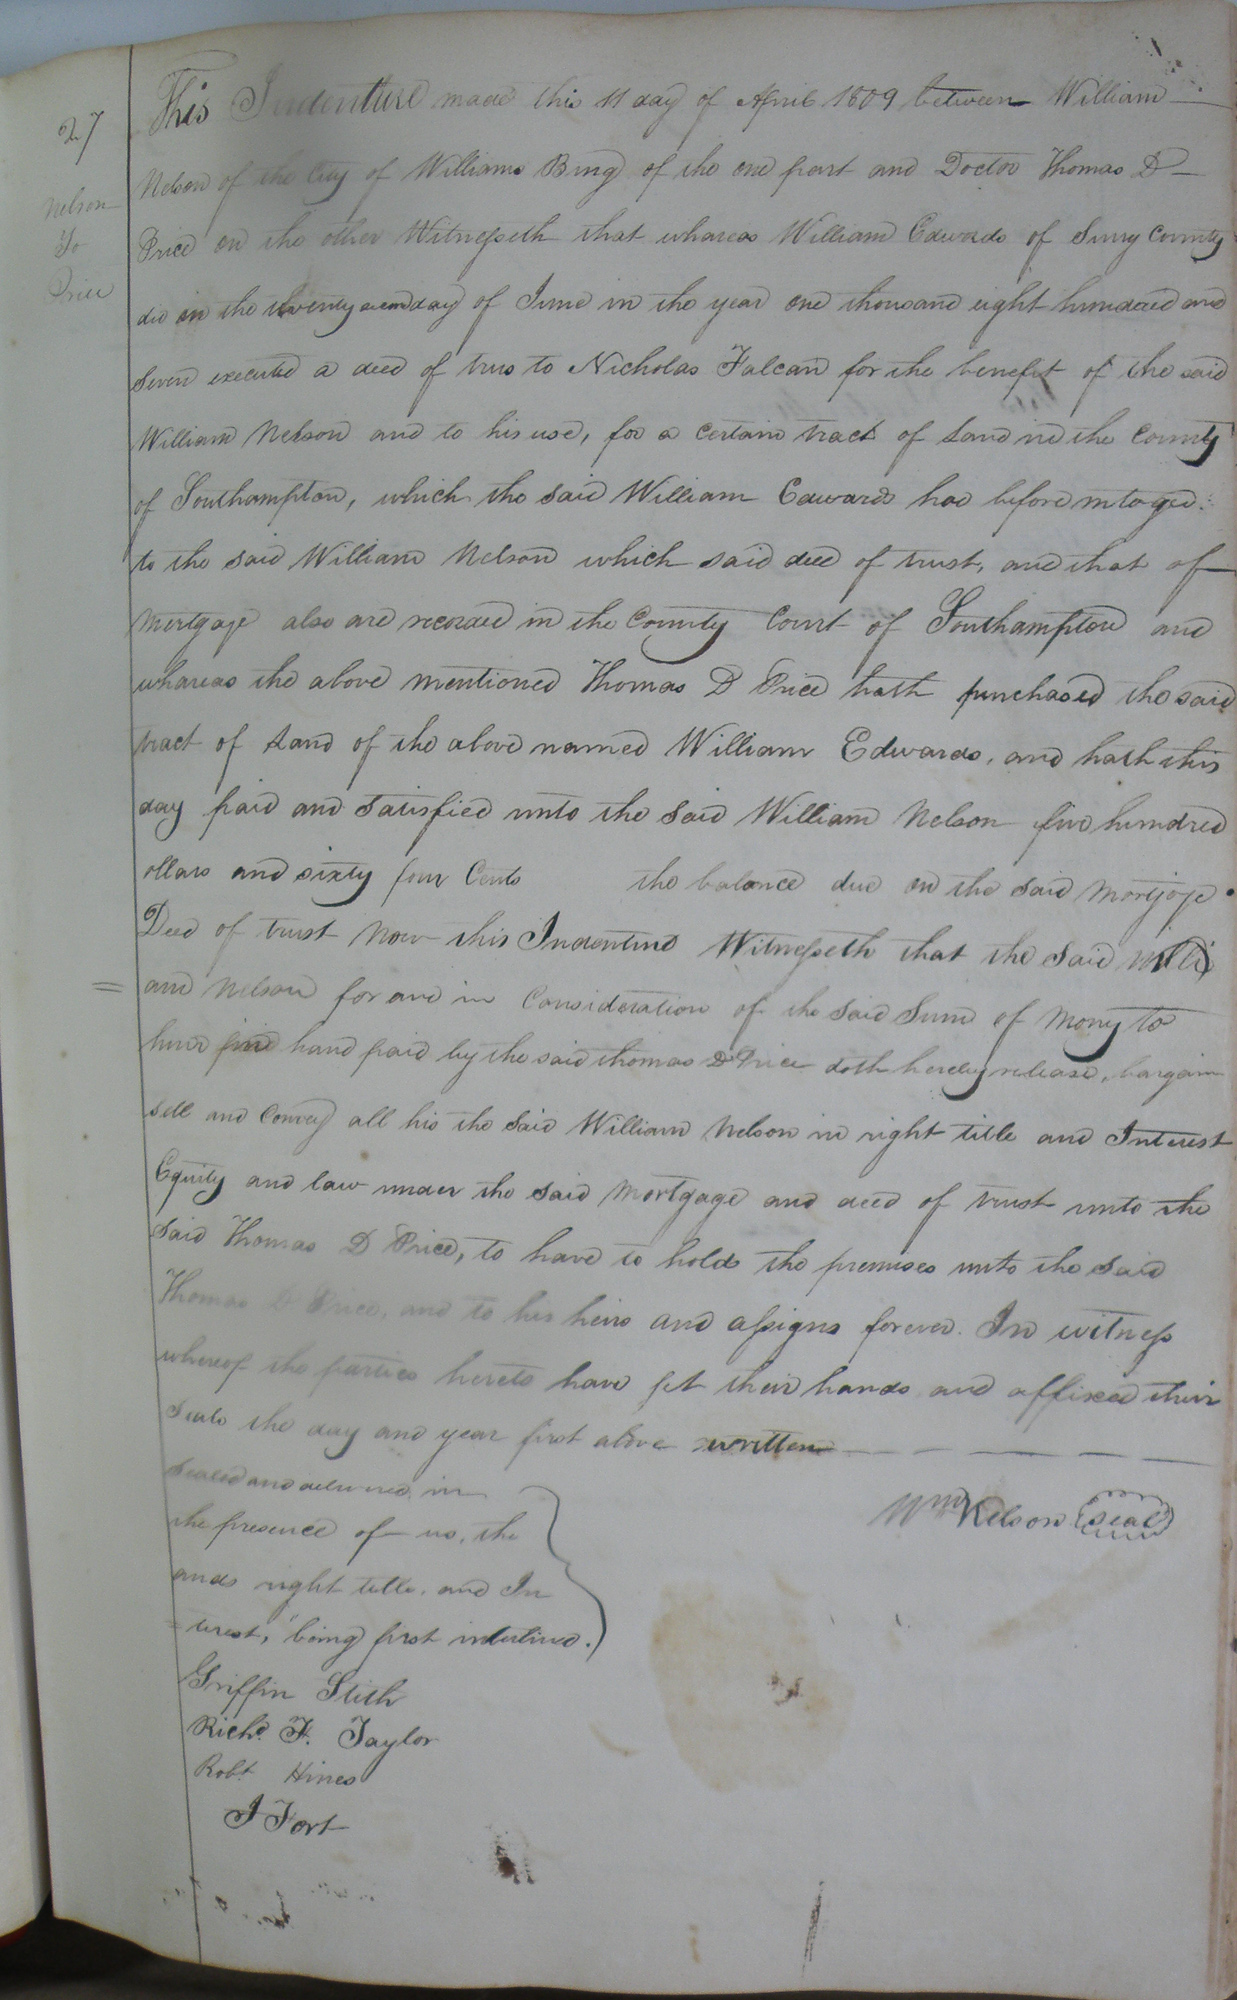 27
Nelson
To
Price
This Indenture made this 11 day of April 1809 between William
Nelson of the City of Williams Burg of the one part and Doctor Thomas D
Price on the other Witnesseth that whareas William Edwards of Surry County
did on the twenty second day of June in the year one thousand eight hundered and
Seven executed a deed of trus to Nicholas Falcan for the benefit of the said
William Nelson and to his use, for a certain tract of Land in the County
of Southampton, which the said William Edwards had before mtoged
to the said William Nelson which said deed of trust, and that of
Mortgage also are recorded in the County Court of Southampton and
whareas the above mentioned Thomas D Price hath purchased the said
tract of Land of the above named William Edwards, and hath this
day paid and Satisfied unto the Said William Nelson five hundred
ollars and sixty four Cents the balance due on the said Mortjage
Deed of trust Now this Indenture Witnesseth that the Said Willi
= am Nelson for and in Consideration of the Said Sum of Mony to
him in hand paid by the said thomas D Price doth hereby release, bargain
Sell and Convey all his the Said William Nelson in right title and Interest
Equity and law under the said Mortgage and deed of trust unto the
Said Thomas D Price, to have to hold the premises unto the Said
Thomas D Price, and to his heirs and assigns forever. In witness
whereof the parties hereto have set their hands and affixed their
Seals the day and year first above written
Sealed and delivered in
the presence of us, the
ands right title, and In
= terest, being first interlined.
Wm Nelson Seal
Griffin Stith
Richd. F. Taylor
Robt. Hines
J Fort